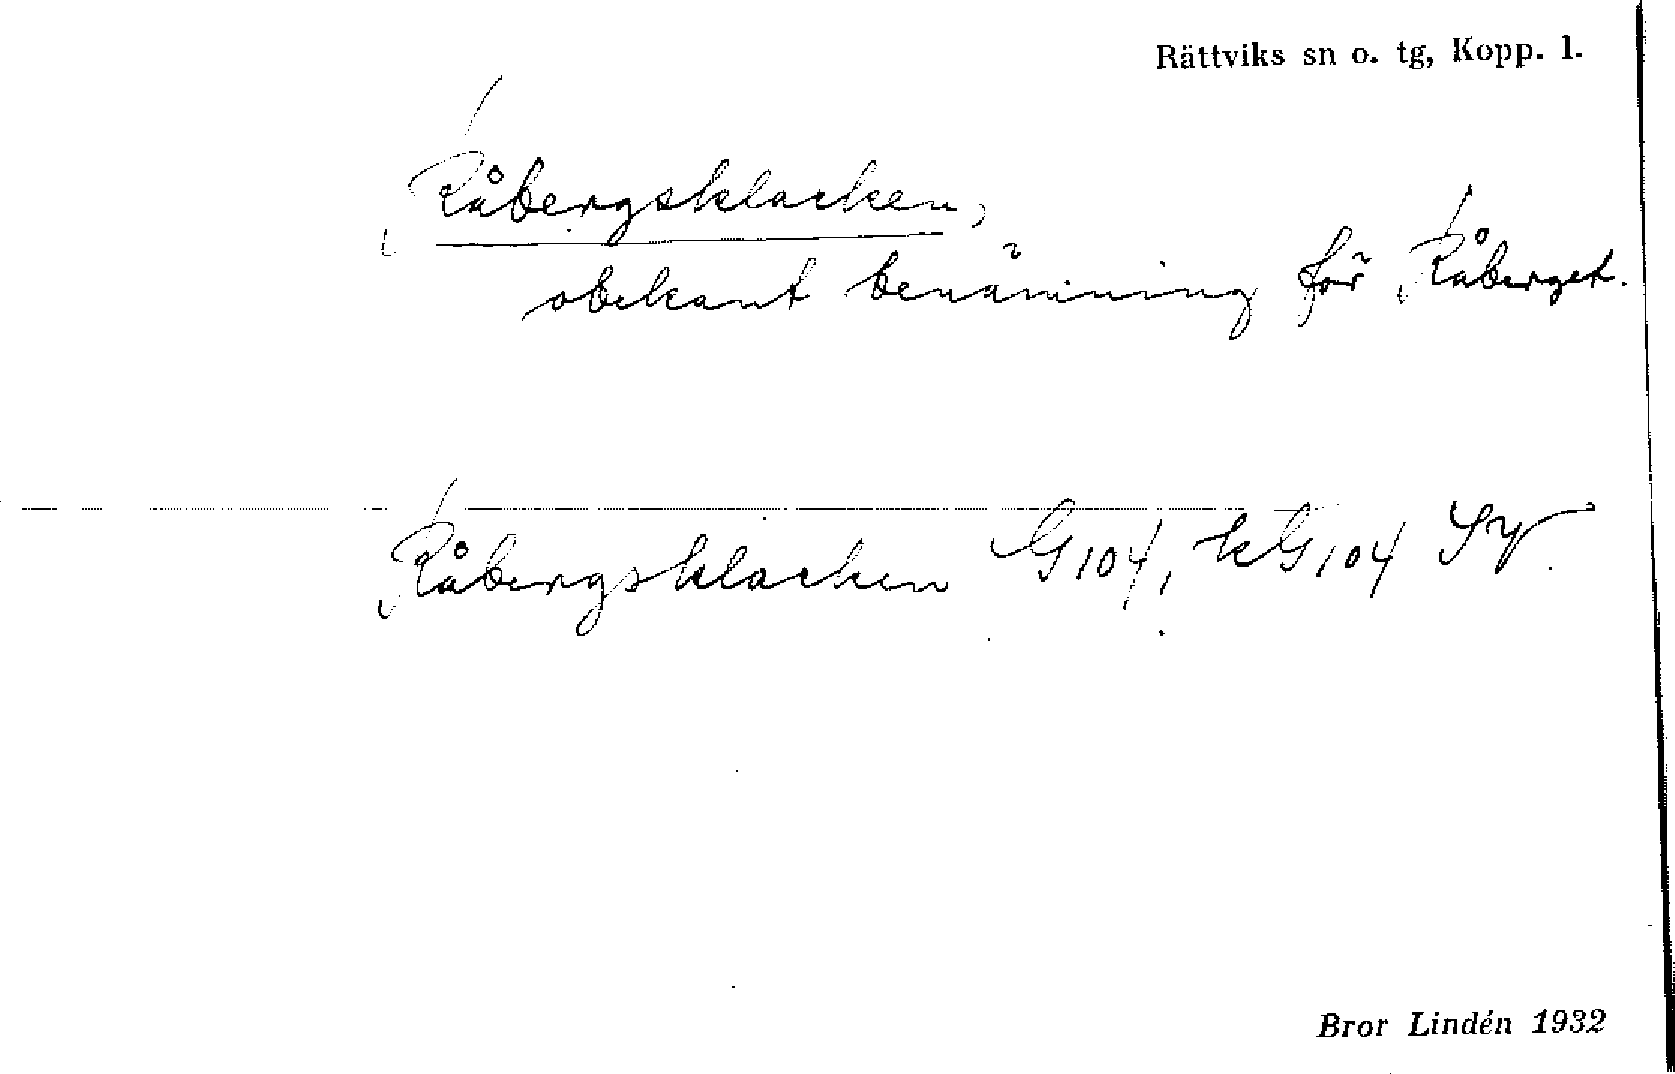 Rättviks sn o. tg, Kopp. l.
Råbergsklacken,
obekant benämning för Råberget.
Råbergsklacken G104, kG104 Sv.
Bror Lindén 1932